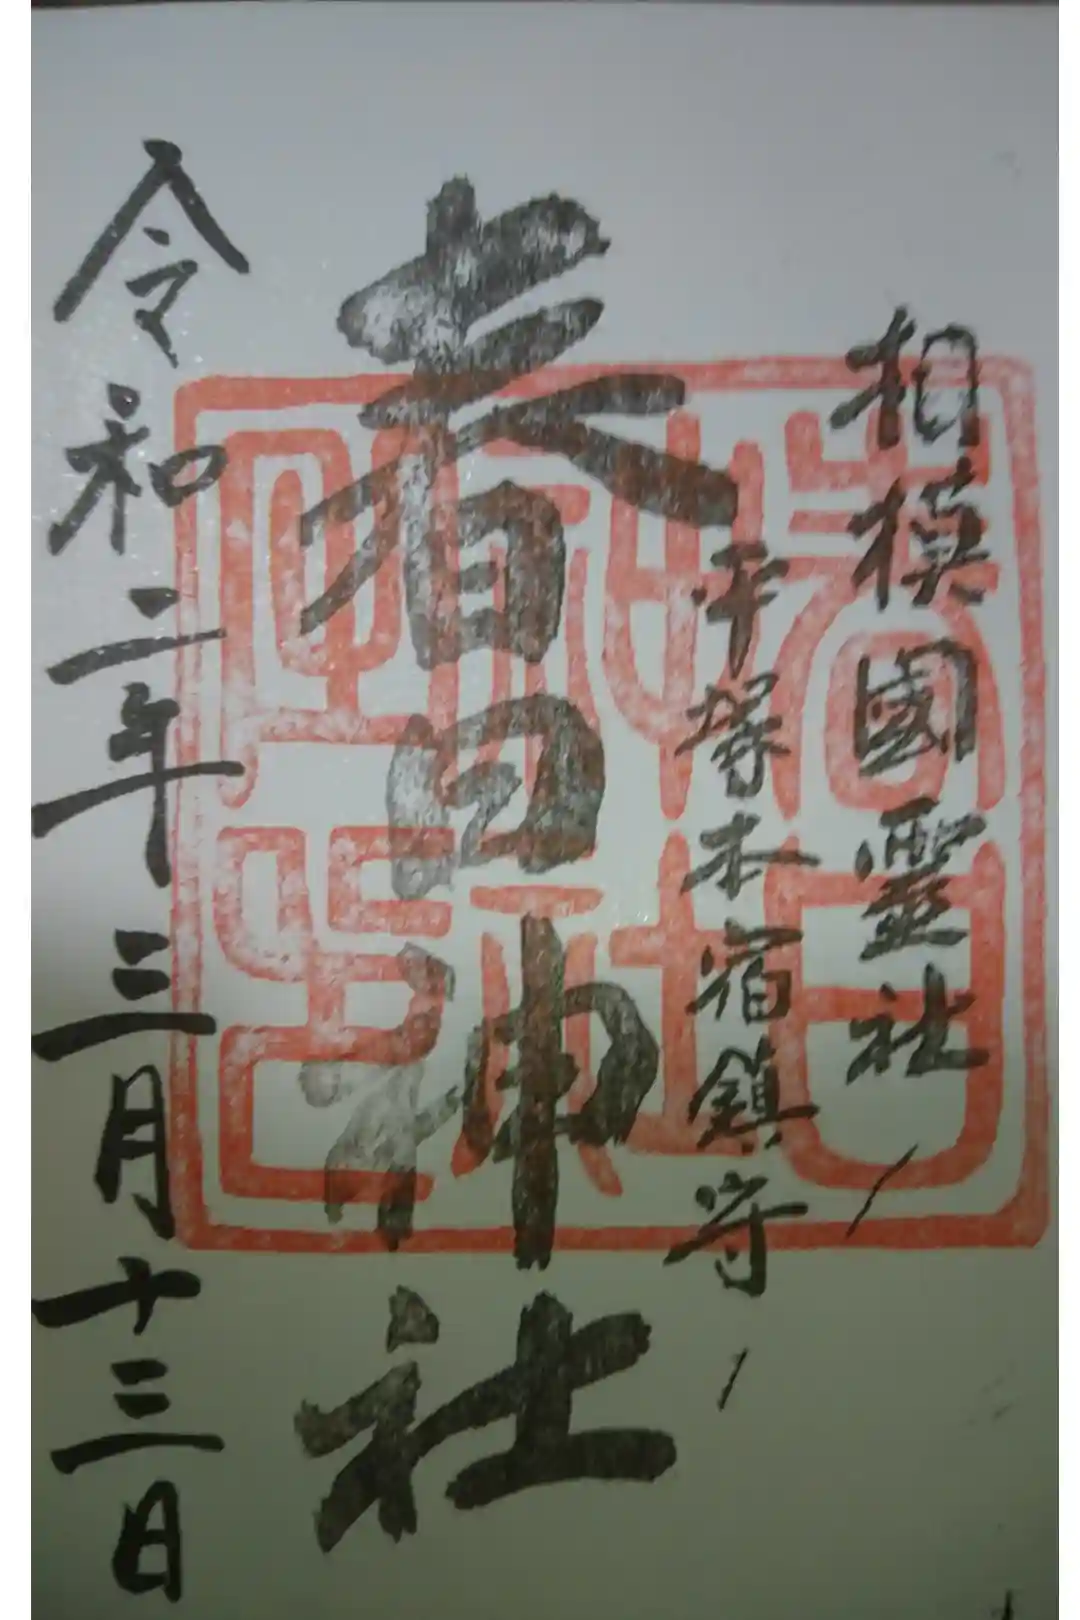 相模國靈社
平塚本宿鎮守
春日神社
令和二年三月十三日